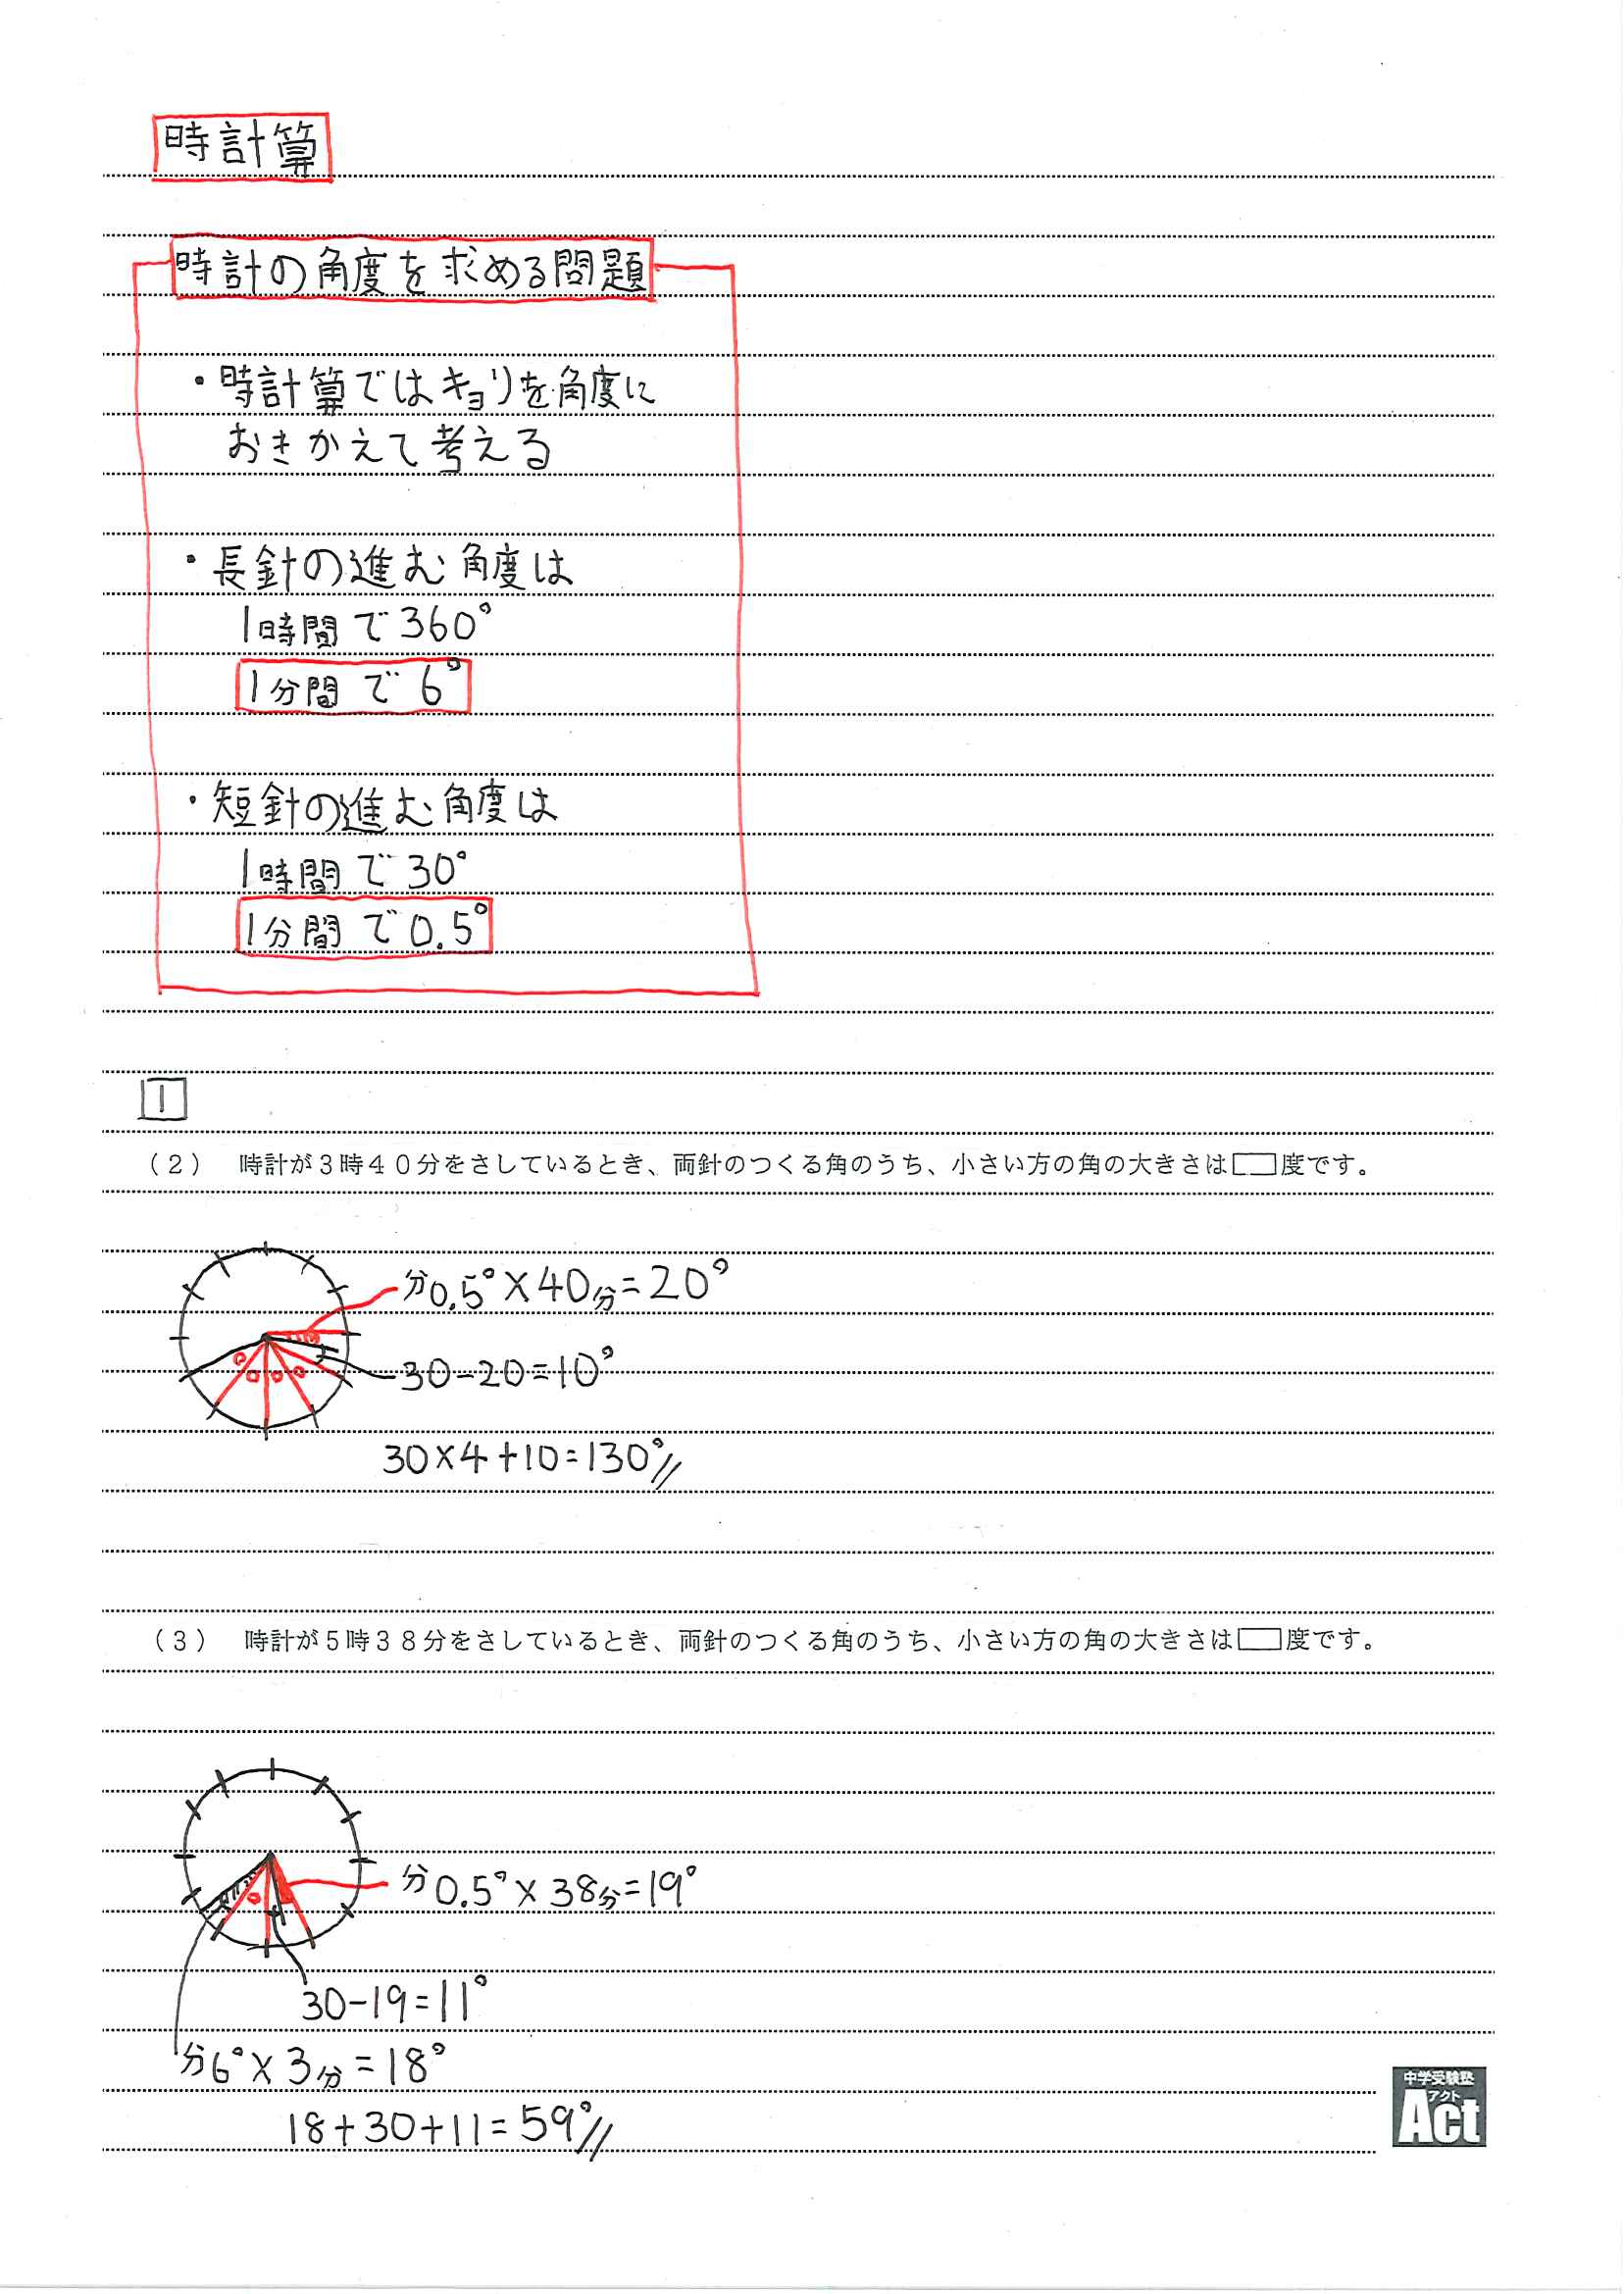 時計算
時計の角度を求める問題
・時計算ではキョリを角度に
おきかえて考える
・長針の進む角度は
1時間で360°
1分間で6°
・短針の進む角度は
1時間で30°
1分間で0.5°
1
（２）　時計が３時４０分をさしているとき、両針のつくる角のうち、小さい方の角の大きさは□度です。
分0.5°×40分=20°
30-20=10°
30×4+10=130°
（３）　時計が５時３８分をさしているとき、両針のつくる角のうち、小さい方の角の大きさは□度です。
分0.5°×38分=19°
30-19=11°
分6°×3分=18°
18+30+11=59°
中学受験塾
アクト
Act